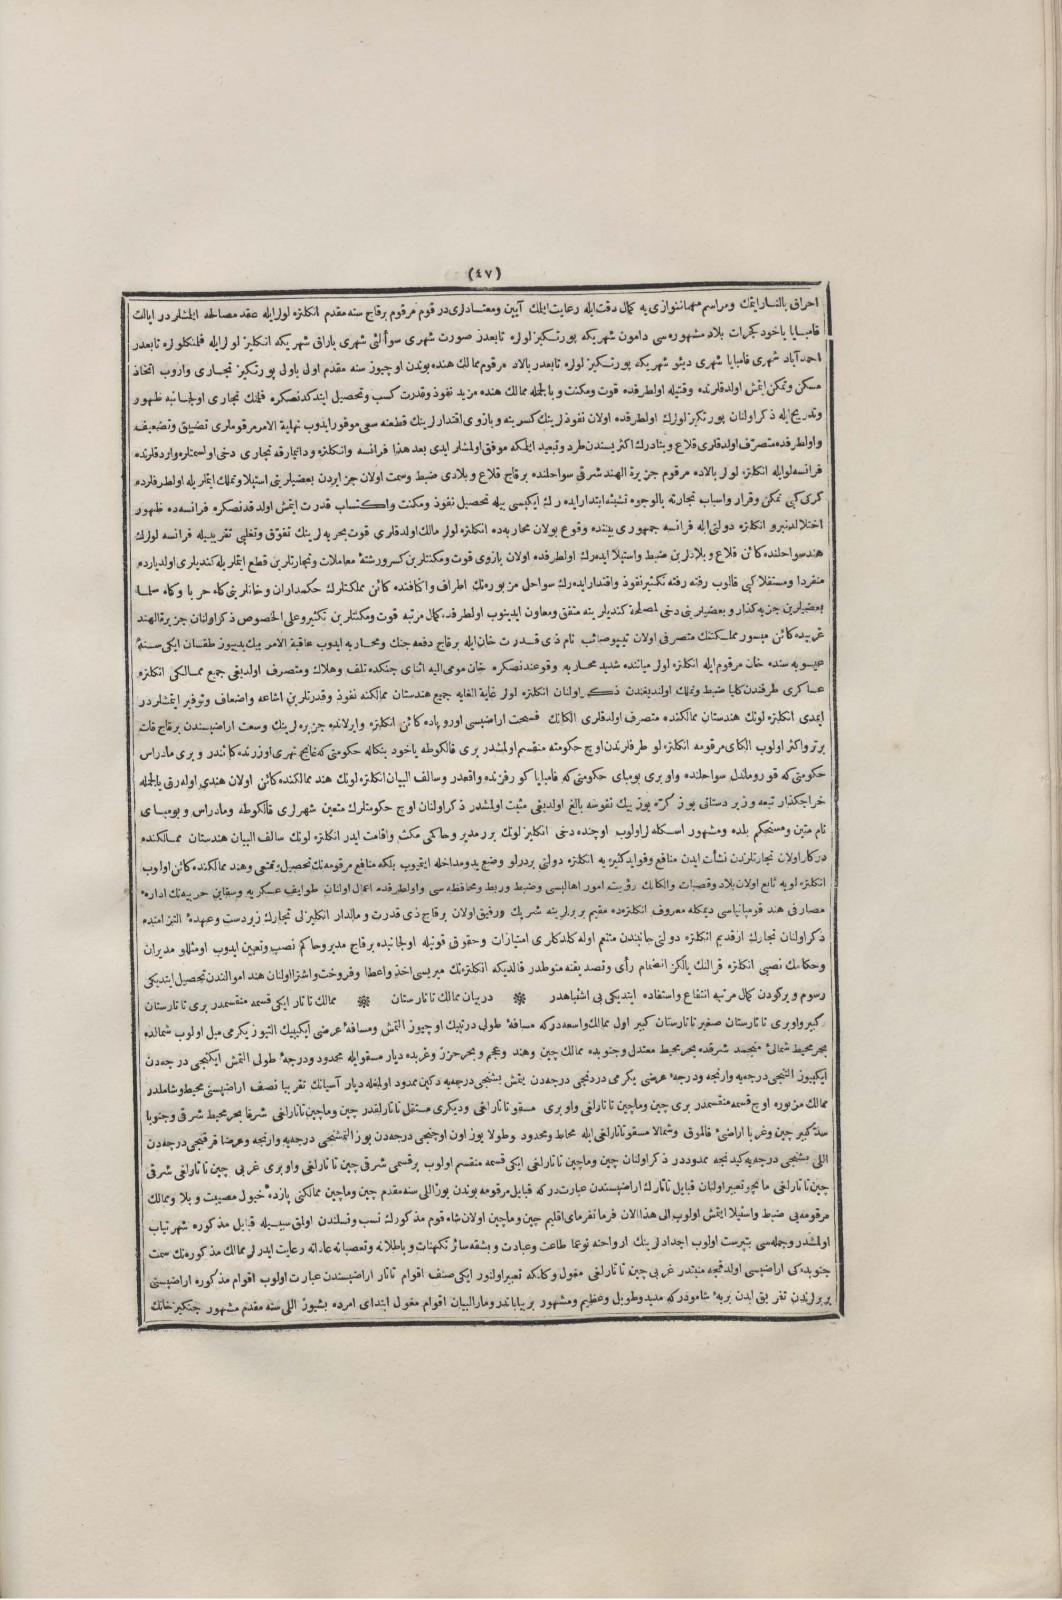 (٤٧)
احراق بالنار ایتمك ومراسم مهماننوازی یه كمال دقت ایله رعایت ایلك آیین ومعتادلری در قوم مرقوم برقاچ سنه مقدم انكلیزه لولر ایله عقد مصالحه ایلمشلردر ایالت
قامبایا یاخود كجرات بلاد مشهوره سی دامون شهریكه پورتكیز لولره تابعدر صورت شهری سوآلئی شهری باراق شهریكه انكلیز لولر ایله فلمنكلولره تابعدر
احمدآباد شهری قامبایا شهری دیئو شهریكه پورتكیز لولره تابعدر بالاد مرقوم ممالك هنده بوندن اوچیوز سنه مقدم اول باول پورتكیز تجاری واروب اتخاذ
مسكن وتمكن ایتمش اولدقلرنده وقتیله اولطرفده قوت ومكنت وبالجمله ممالك هنده مزید نفوذ وقدرت كسب وتحصیل ایتدكدنصكره فلمنك تجاری اولجانبه ظهور
وتدریج ایله ذكر اولنان پورتكیز لولرك اولطرفده اولان نفوذلرینك كسرینه وبازوی اقتدارلرینك قطعنه سعی موفور ایدوب نهایة الامر مرقوملری تضییق وتضعیف
واولطرفده متصرف اولدقلری قلاع وبنادرك اكثریسندن طرد وتبعید ایلمكه موفق اولمشلر ایدی بعد هذا فرانسه وانكلیزه ودانیمارقه تجاری دخی اولسمتلره واردقلرنده
فرانسه لو ایله انكلیزه لولر بالاده مرقوم جزیرة الهند شرقی سواحلنده برقاچ قلاع وبلادی ضبط وسمت اولان جزایردن بعضیلرینی استیلا وتملك ایتملریله اولطرفلرده
كركی كبی تمكن وقرار واسباب تجارته بالوجوه تشبثه ابتدار ایده رك ایكیسی بیله تحصیل نفوذ ومكنت واكتساب قدرت ایتمش اولدقدنصكره فرانسه ده ظهور
اختلالدنبرو انكلیزه دولتی ایله فرانسه جمهوری بیننده وقوع بولان محاربه ده انكلیزه لولر مالك اولدقلری قوت بحریه لرینك تفوق وتغلبی تقریبیله فرانسه لولرك
هند سواحلنده كائن قلاع وبلادلرین ضبط واستیلا ایده رك اولطرفده اولان بازوی قوت ومكنتلرین كسر ورشتهٔ معاملات وتجارتلرین قطع ایتملریله كندیلری اولدیارده
منفردا ومستقلا كبی قالوب رفته رفته تكثیر نفوذ واقتدار ایده رك سواحل مزبوره نك اطراف واكنافنده كائن مملكتلرك حكمداران وخانلرینی كاه حربا وكاه سلما
بعضیلرین جزیه كذار وبعضیلرینی دخی لمصلحة كندیلرینه متفق ومعاون ایدینوب اولطرفده كمال مرتبه قوت ومكنتلرین تكثیر وعلی الخصوص ذكر اولنان جزیرة الهند
غربیده كائن میسور مملكتنك متصرفی اولان تیپو صائب نام ذی قدرت خان ایله برقاچ دفعه جنك ومحاربه ایدوب عاقبة الامر بیك یدییوز طقسان ایكی سنهٔ
عیسویه سنده خان مرقوم ایله انكلیزه لولر میاننده شدید محاربه وقوعندنصكره خان مومی الیه اثنای جنكده تلف وهلاك ومتصرف اولدیغی جمیع ممالكی انكلیزه
عساكری طرفندن كلیا ضبط وتملك اولندیغندن ذكر اولنان انكلیزه لولر غایة الغایه جمیع هندستان ممالكنه نفوذ وقدرتلرین اشاعه واضعاف وتوفیر ایتمشلردر
ایمدی انكلیزه لونك هندستان ممالكنده متصرف اولدقلری الكانك فسحت اراضیسی اوروپاده كائن انكلیزه وایرلانده جزیره لرینك وسعت اراضیسندن برقاچ قات
برتر واكثر اولوب الكای مرقومه انكلیزه لو طرفلرندن اوچ حكومته منقسم اولمشدر بری قالكوطه یاخود بنكاله حكومتی كه غانج نهری اوزرنده كائندر وبری مادراس
حكومتی كه قوروماندل سواحلنده واوبری بومبای حكومتی كه قامبایا كورفزنده واقعدر وسالف البیان انكلیزه لونك هند ممالكنده كائن اولان هندی اوله رق بالجمله
خراجكذار تبعه وزیر دستانی یوز كره یوز بیك نفوسه بالغ اولدیغی مثبت اولمشدر ذكر اولنان اوچ حكومتلرك متعین شهرلری قالكوطه ومادراس وبومبای
نام متین ومستحكم بلده ومشهور اسكله لر اولوب اوچنده دخی انكلیز لونك برر مدیر وحاكمی مكث واقامت ایدر انكلیزه لونك سالف البیان هندستان ممالكنده
دركار اولان تجارتلرندن نشأت ایدن منافع وفواید كثیره یه انكلیزه دولتی بردرلو وضع ید ومداخله ایتمیوب بلكه منافع مرقومه نك تحصیل وتمتعی وهند ممالكنده كائن اولوب
انكلیزه لویه تابع اولان بلاد وقصبات والكانك رؤیت امور اهالیسی وضبط وربط ومحافظه سی واولطرفده اعمال اولنان طوایف عسكریه وسفاین حربیه نك اداره
مصارفی هند قومپانیاسی دیمكله معروف انكلیزه ده مقیم بربرلرینه شریك ورفیق اولان برقاچ ذی قدرت ومالدار انكلیزلی تجارك زیردست وعهدهٔ التزامنده
ذكر اولنان تجارك از قدیم انكلیزه دولتی جانبندن متنعم اوله كلدكلری امتیازات وحقوق قوتیله اولجانبده برقاچ مدیر وحاكم نصب وتعیین ایدوب اومثللو مدیران
وحكامك نصبی انكلیزه قرالنك یالكز انضمام رأی وتصدیقنه منوطدر قالدیكه انكلیزه نك میریسی اخذ واعطا وفروخت واشترا اولنان هند اموالندن تحصیل ایتدیكی
رسوم ویركودن كمال مرتبه انتفاع واستفاده ایتدیكی بی اشتباهدر ❋ دربیان ممالك تاتارستان ❋ ممالك تاتار ایكی قسمه منقسمدر بری تاتارستان
كبیر واوبری تاتارستان صغیر تاتارستان كبیر اول ممالك واسعه دركه مسافهٔ طولی درتبیك اوچیوز التمش ومسافهٔ عرضی ایكیبیك التیوز یكرمی میل اولوب شمالده
بحر محیط شمالئ منجمد شرقده بحر محیط معتدل وجنوبده ممالك چین وهند وعجم وبحر خزر وغربده دیار مسقو ایله محدود ودرجهٔ طولی التمش ایكنجی درجه دن
ایكییوز التنجی درجه یه وارنجه ودرجهٔ عرضی یكرمی دردنجی درجه دن یتمش بشنجی درجه یه دكین ممدود اولمغله دیار آسیانك تقریبا نصف اراضیسنی محیط وشاملدر
ممالك مزبوره اوچ قسمه منقسمدر بری چین وماچین تاتارلغی واوبری مسقو تاتارلغی ودیكری مستقل تاتارلقدر چین وماچین تاتارلغی شرقا بحر محیط شرقی وجنوبا
سد كبیر چین وغربا اراضئ قالموق وشمالا مسقو تاتارلغی ایله محاط ومحدود وطولا یوز اون اوچنجی درجه دن یوز التمشنجی درجه یه وارنجه وعرضا قرقنجی درجه دن
اللی بشنجی درجه یه كیدنجه ممدوددر ذكر اولنان چین وماچین تاتارلغی ایكی قسمه منقسم اولوب برقسمی شرقی چین تاتارلغی واوبری غربی چین تاتارلغی شرقی
چین تاتارلغی مانچو تعبیر اولنان قبایل تاتارك اراضیسندن عبارت دركه قبایل مرقومه بوندن یوز اللی سنه مقدم چین وماچین ممالكنی پازدهٔ خیول مصیبت وبلا وممالك
مرقومه یی ضبط واستیلا ایتمش اولوب الی هذا الان فرمانفرمای اقلیم چین وماچین اولان شاه قوم مذكورك نسب ونسلندن اولمق سببیله قبایل مذكوره شهرتیاب
اولمشدر وجمله سی بتپرست اولوب اجدادلرینك ارواحنه نوعما طاعت وعبادت وبشقه سائر تكهنات وباطلانه وتعصبانه عاداته رعایت ایدرلر ممالك مذكوره نك سمت
جنوبده كی اراضیسی اولدقجه منبتدر غربی چین تاتارلغی مغول وكالمكه تعبیر اولنور ایكی صنف اقوام تاتار اراضیسندن عبارت اولوب اقوام مذكوره اراضیسنی
بربرلرندن تفریق ایدن بریهٔ شامودركه مدید وطویل وعظیم ومشهور بریباباندر ومار البیان اقوام مغول ابتدای امرده بشیوز اللی سنه مقدم مشهور جنكیز خانك